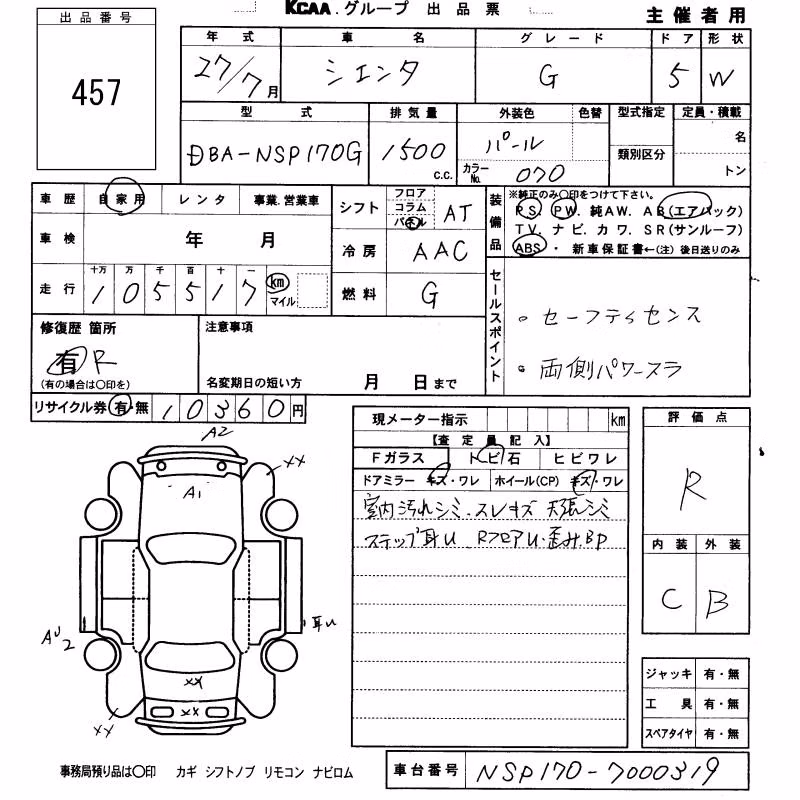 KCAA.グループ 出品票
主催者用
出品番号
457
年式 車名 グレード ドア 形状
27/7月 シエンタ G 5 W
型式 排気量 外装色 色替 型式指定 定員・積載
DBA-NSP170G 1500 c.c. パール 名
類別区分
カラーNo. 070 トン
車歴 自家用 レンタ 事業.営業車
シフト フロア コラム パネル AT
装備品
※純正のみ○印をつけて下さい。
PS. PW. 純AW. AB(エアバック)
TV. ナビ. カワ. SR(サンルーフ)
ABS ・ 新車保証書←(注) 後日送りのみ
車検 年 月
冷房 AAC
走行 十万 万 千 百 十 一
105517 km マイル
燃料 G
セールスポイント
。セーフティセンス
。両側パワースラ
修復歴 箇所
有 R
(有の場合は○印を)
注意事項
名変期日の短い方 月 日まで
リサイクル券 有・無 10360円
現メーター指示 km
【査定員記入】
Fガラス トビ石 ヒビワレ
ドアミラー キズ・ワレ ホイール(CP) キズ・ワレ
室内汚れシミ.スレキズ 天張シミ
ステップ耳U RフロアU・歪み.BP
評価点
R
内装 外装
C B
A2
XX
A1
AU2
耳U
XX
XX
XX
ジャッキ 有・無
工具 有・無
スペアタイヤ 有・無
事務局預り品は○印 カギ シフトノブ リモコン ナビロム
車台番号 NSP170-7000319